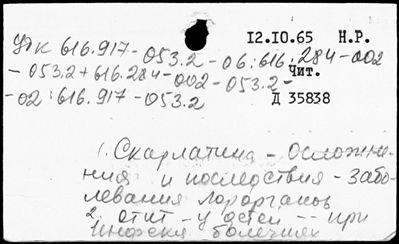 12.10.65 Н.Р.
УДК 616.917-053.2-06:616.284-002
-053.2+616.284-002-053.2-
Чит.
-02:616.917-053.2
Д 35838
1. Скарлатина - Осложне-
ния и последствия - Забо-
левания лорорганов
2. отит - у детей -- при
инфекц болезнях